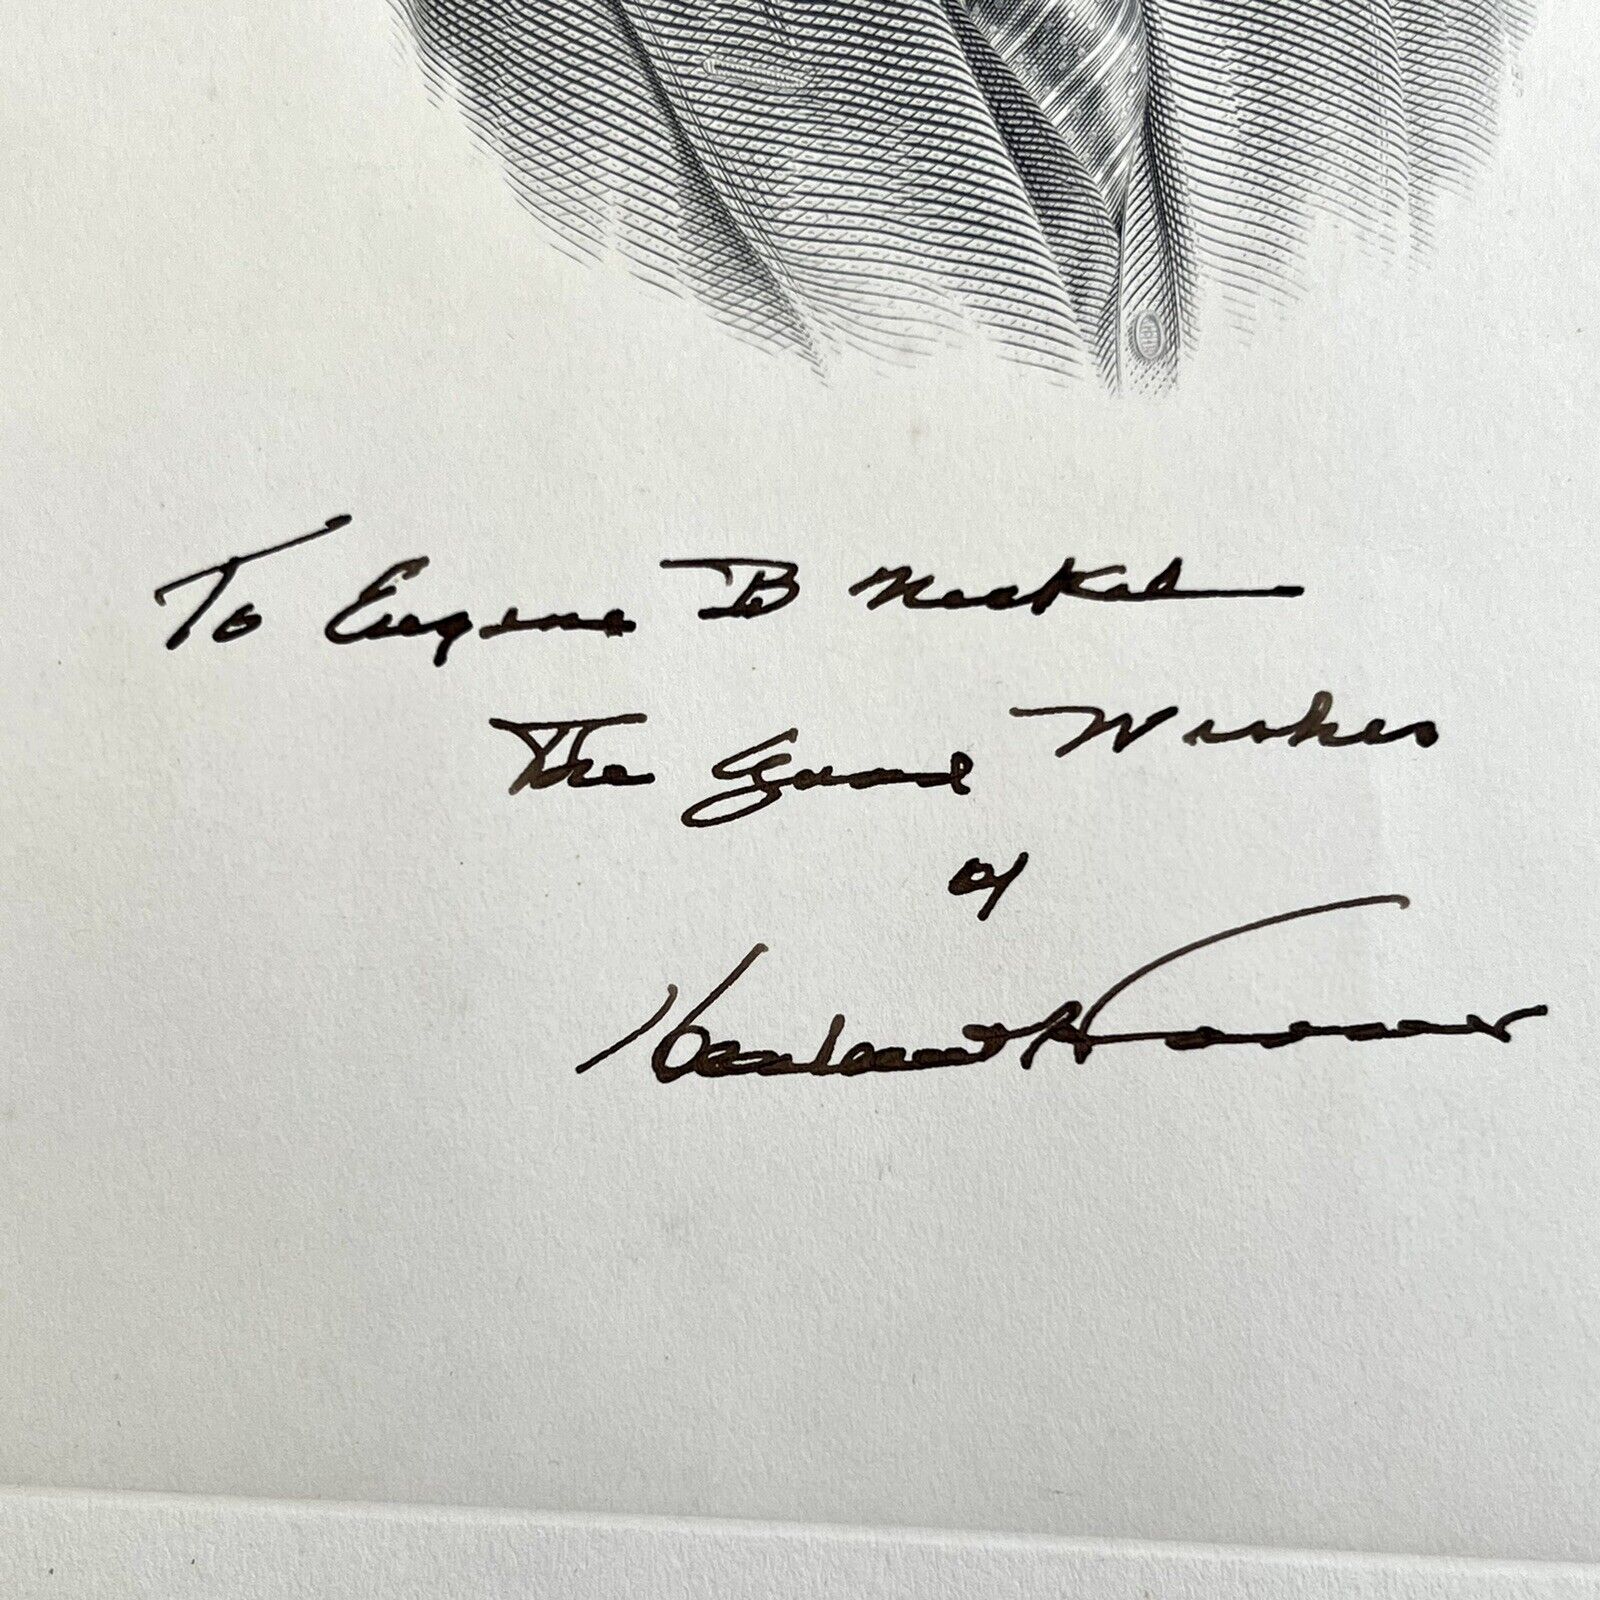 To Eugene B Neckel
The Good Wishes
of
Herbert Hoover